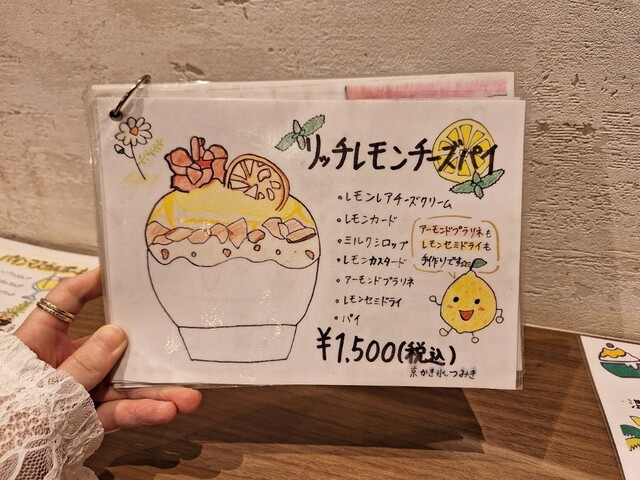 リッチレモンチーズパイ
・レモンレアチーズクリーム
・レモンカード
・ミルクシロップ
・レモンカスタード
・アーモンドプラリネ
・レモンセミドライ
・パイ
アーモンドプラリネも
レモンセミドライも
手作りです☆
¥1.500(税込)
京かき氷つみき